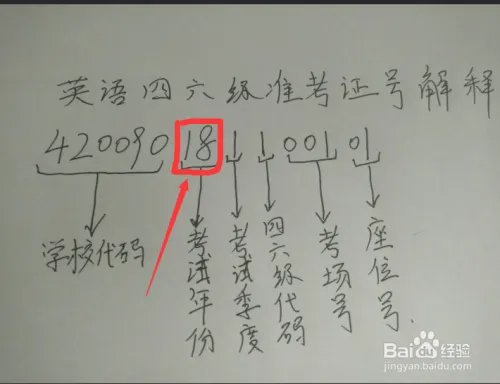 英语四六级准考证号解释
420090 18 1 1 001 01
学校代码
考试年份
考试季度
四六级代码
考场号
座位号.
Baidu经验
jingyan.baidu.com